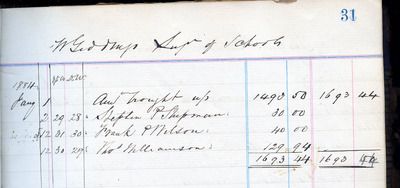 31
Supr of Schools
1884
Jany 1 Amt brought up 1490 50 1693 44
2 29 28 Stephen P Shipman 30 00
12 31 30 Frank P Wilson 40 00
12 30 29 Thos Williamson 129 94
1693 44 1693 44